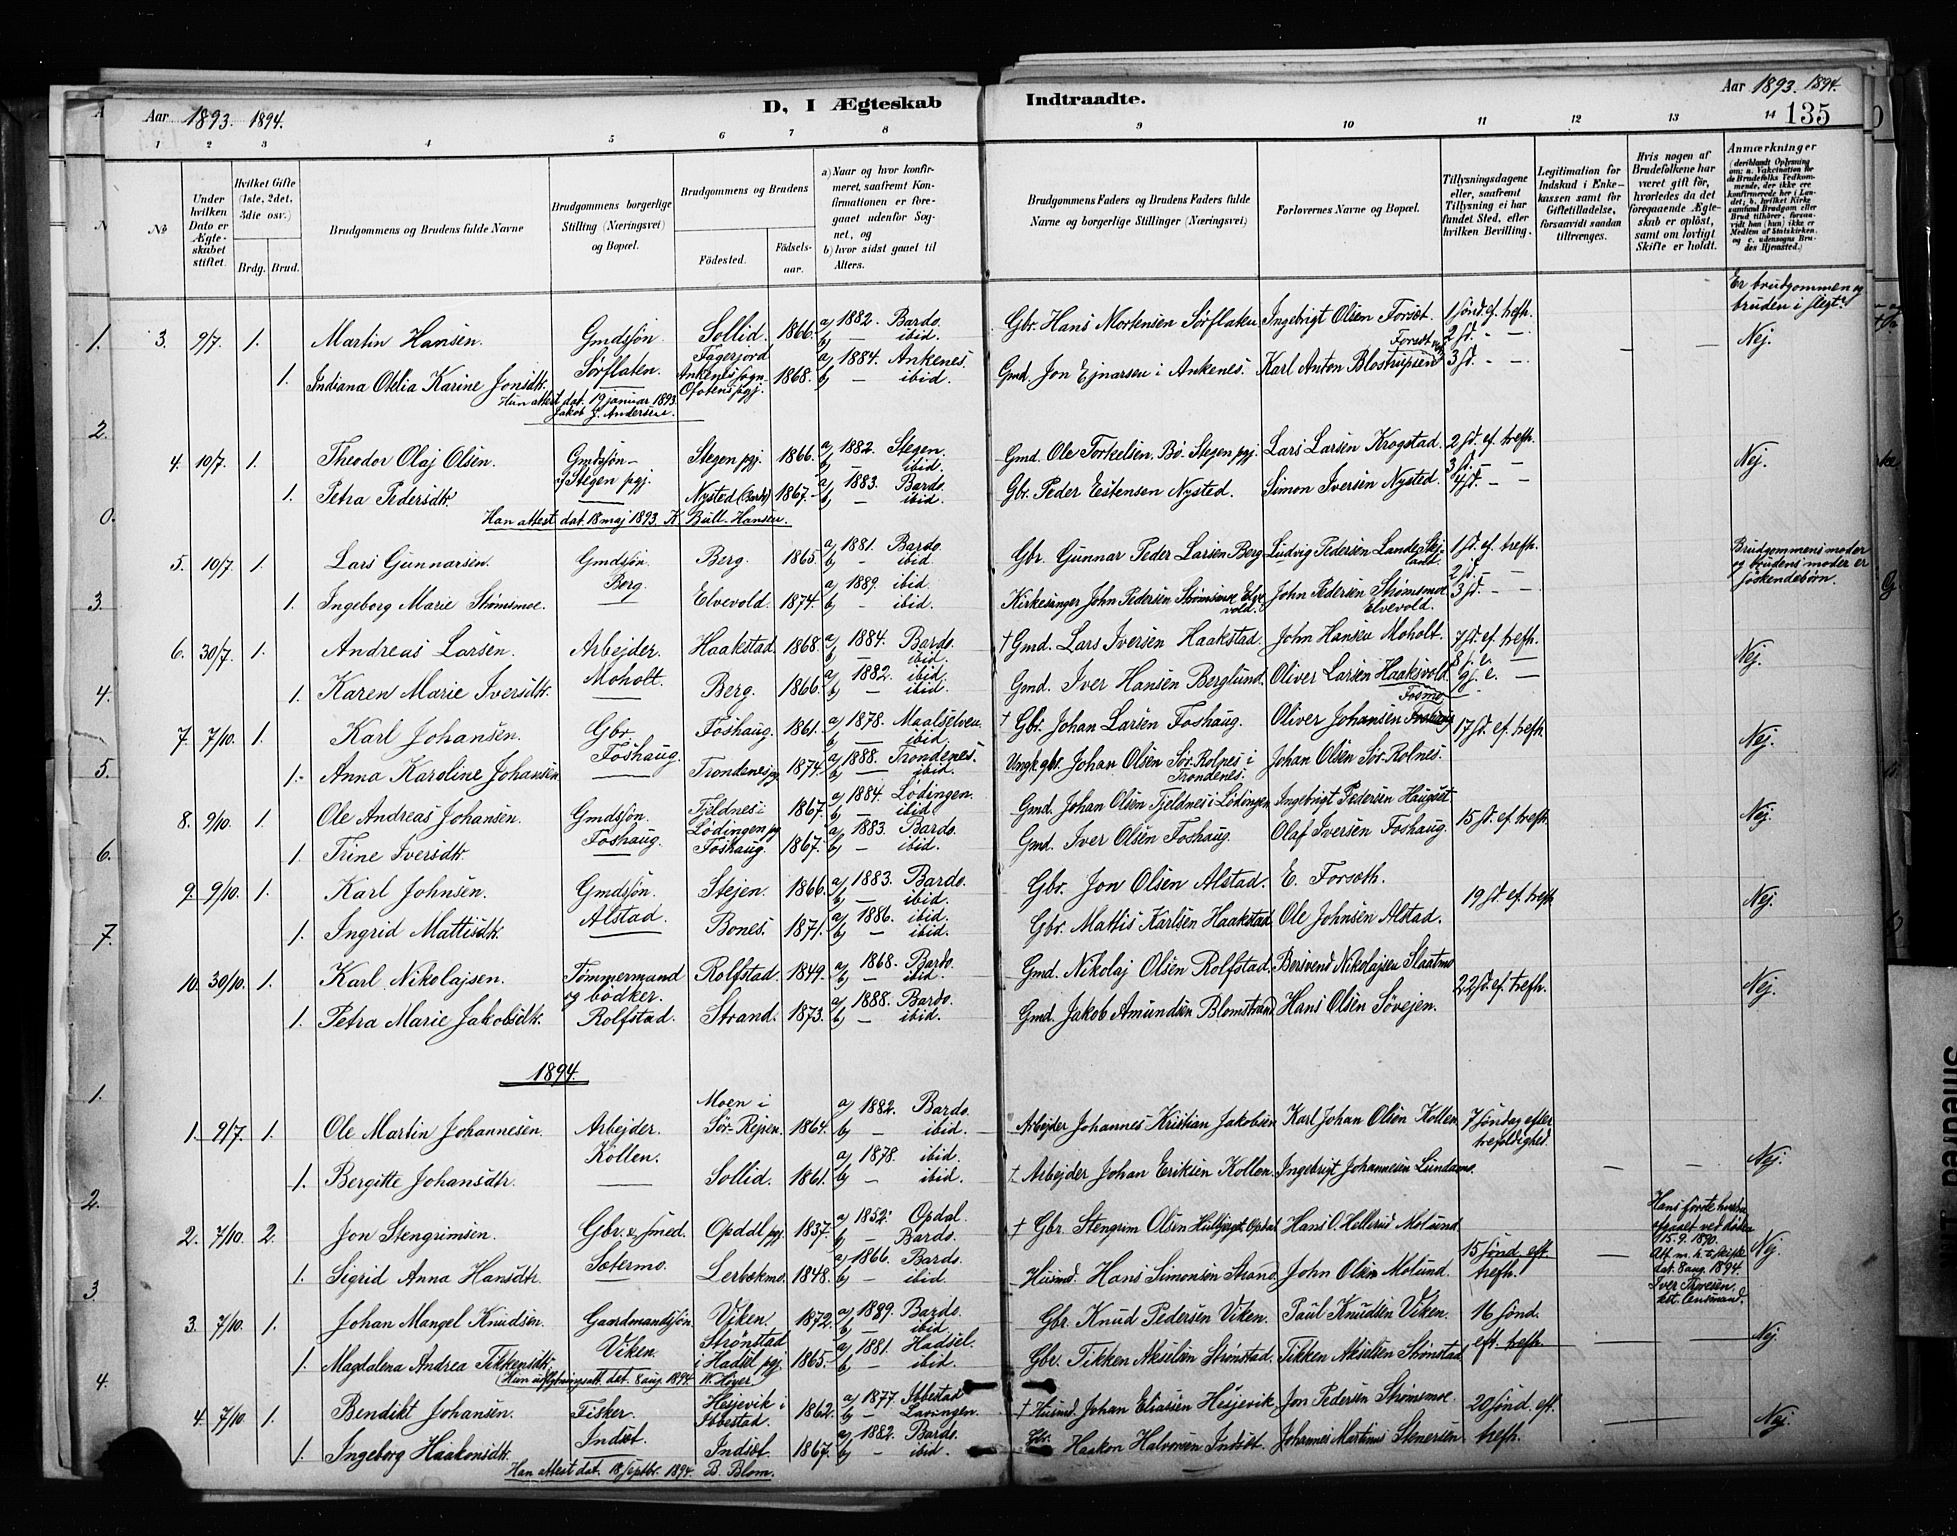 D, I Ægteskab Indtraadte.
Aar 1893. 1894.
Aar 1893. 1894.
135
1 2 3 4 5 6 7 8 9 10 11 12 13 14
No
Under hvilken Dato er Ægteskabet stiftet.
Hvilket Gifte (1ste, 2det, 3die osv.)
Brdg. Brud.
Brudgommens og Brudens fulde Navne
Brudgommens borgerlige Stilling (Næringsvei) og Bopæl.
Brudgommens og Brudens
Födested.
Födselsaar.
a) Naar og hvor konfirmeret, saafremt Konfirmationen er foregaaet udenfor Sognet, og
b) hvor sidst gaaet til Alters.
Brudgommens Faders og Brudens Faders fulde Navne og borgerlige Stillinger (Næringsvei)
Forlovernes Navne og Bopæl.
Tillysningsdagene eller, saafremt Tillysning ei har fundet Sted, efter hvilken Bevilling.
Legitimation for Indskud i Enkekassen samt for Giftetilladelse, forsaavidt saadan tiltrænges.
Hvis nogen af Brudefolkene har været gift för, hvorledes da det foregaaende Ægteskab er oplöst, samt om lovligt Skifte er holdt.
Anmærkninger
Er brudgommen og bruden i slegt?
3. 9/7. 1. Martin Hansen. Gmdsjøn. Sollid. 1866. a) 1882. Bardo. b) — ibid. Gbr. Hans Mortensen Sørflaten Ingebrigt Olsen Forset. 1 sønd. ef. trefh. 2 sd. - — Nej.
1. Indiana Otelia Karine Jonsdtr. Sørflaten. Fagerjord Ankenes sogn Ofotens pgj. 1868. a) 1884. Ankenes. b) — ibid. Gmd. Jon Ejnarsen i Ankenes. Karl Anton Blostrupsen 3 sd. - —
Hun attest dat. 19 januar 1893. Jakob J. Andersen.
4. 10/7. 1. Theodor Olaj Olsen. Gmdsøn af Stegen pgj. Stegen pgj. 1866. a) 1882. Stegen. b) — ibid. Gmd. Ole Torkelsen, Bø. Stegen pgj. Lars Larsen Krogstad. 2 sd. ef. trefh. 3 sd. - — Nej.
1. Petra Pedersdtr. Nysted (Bardo) 1867. a) 1883. Bardo. b) — ibid. Gbr. Peder Estensen Nysted. Simon Iversen Nysted. 4 sd. - —
Han attest dat. 18 maj 1893. K. Bull-Hansen.
5. 10/7. 1. Lars Gunnarsen. Gmdsjøn. Berg. Berg. 1865. a) 1881. Bardo. b) — ibid. Gbr. Gunnar Peder Larsen Berg Ludvig Pedersen 1 sd. ef. trefh. 2 sd. - — Brudgommens moder og brudens moder er søskendebørn.
1. Ingeborg Marie Strømsmoe. Elvevold. 1874. a) 1889. ibid. b) — ibid. Kirkesanger John Pedersen Strømsmoe Elvevold. John Pedersen Strømsmoe Elvevold. 3 sd. - —
6. 30/7. 1. Andreas Larsen. Arbejder. Moholt. Haakstad. 1868. a) 1884. Bardo. b) — ibid. † Gmd. Lars Iversen Haakstad. John Hansen Moholt. 7 sd. ef. trefh. Nej.
1. Karen Marie Iversdtr. Berg. 1866. a) 1882. ibid. b) — ibid. Gmd. Iver Hansen Berglund. Oliver Larsen Haaksvold.
7. 7/10. 1. Karl Johansen. Gbr. Foshaug. Foshaug. 1861. a) 1878. Maalselven. b) — ibid. † Gbr. Johan Larsen Foshaug. Oliver Johansen Fosmo 17 sd. ef. trefh. Nej.
1. Anna Karoline Johansen Trondenes pgj. 1874. a) 1888. Trondenes. b) — ibid. Ungk. gbr. Johan Olsen Sør-Rolnes i Trondenes. Johan Olsen Sør-Rolnes.
8. 9/10. 1. Ole Andreas Johansen. Gmdsjøn. Foshaug. Fjeldnes i Lødingen pgj. 1867. a) 1884. Lødingen. b) — ibid. Gmd. Johan Olsen Fjeldnes i Lødingen Ingebrigt Pedersen Haugset 15 sd. ef. trefh. Nej.
1. Trine Iversdtr. Foshaug. 1867. a) 1883. Bardo. b) — ibid. Gmd. Iver Olsen Foshaug. Olaf Iversen Foshaug.
9. 9/10. 1. Karl Johnsen. Gmdsjøn. Alstad. Stejen. 1866. a) 1883. Bardo. b) — ibid. Gbr. Jon Olsen Alstad. E. Forseth. 19 sd. ef. trefh. Nej.
1. Ingrid Mattisdtr. Bones. 1871. a) 1886. ibid. b) — ibid. Gbr. Mattis Karlsen Haakstad. Ole Johnsen Alstad.
10. 30/10. 1. Karl Nikolajsen. Tømmermand og bødker. Rolfstad. Rolfstad. 1849. a) 1868. Bardo. b) — ibid. Gmd. Nikolaj Olsen Rolfstad. Bersvend Nikolajsen Slaatmo 22 sd. ef. trefh. Nej.
1. Petra Marie Jakobsdtr. Strand. 1873. a) 1888. Bardo. b) — ibid. Gmd. Jakob Amundsen Blomstrand Hans Olsen Søvejen.
1894
1. 9/7. 1. Ole Martin Johannesen. Arbejder. Kollen. Moen i Sør-Rejsen. 1864. a) 1882. Bardo. b) — ibid. Arbejder Johannes Kristian Jakobsen Karl Johan Olsen Kollen 7 søndag efter trefoldighed. Nej.
1. Bergitte Johansdtr. Sollid. 1861. a) 1878. ibid. b) — ibid. † Arbejder Johan Eriksen Kollen. Ingebrigt Johannesen Lundamo.
2. 7/10. 2. Jon Stengrimsen. Gbr. & smed. Sætermo. Opdal pgj. 1837. a) 1852. Opdal. b) — Bardo. † Gbr. Stengrim Olsen Opdal Hans O. Hellerud Molund 15 sønd. eft. trefh. Hans første hustru afgaaet ved døden 15.9.1890. Att. m. h. t. skifte dat. 8 aug. 1894. Iver Iversen. kst. lensmand. Nej.
1. Sigrid Anna Hansdtr. Lerbækmo. 1848. a) 1866. Bardo. b) — ibid. Husmd. Hans Simonsen Strand John Olsen Molund.
3. 7/10. 1. Johan Mangel Knudsen. Gaardmandsjøn. Viken. Viken. 1872. a) 1889. Bardo. b) — ibid. Gbr. Knud Pedersen Viken. Paul Knudsen Viken. 16 sønd. eft. trefh. Nej.
1. Magdalena Andrea Tikkensdtr. Strønstad i Hadsel pgj. 1865. a) 1881. Hadsel. b) — ibid. Gbr. Tikken Akselsen Strønstad. Tikken Akselsen Strønstad
(Hun udflytningsatt. dat. 8 aug. 1894. W. Høyer
4. 7/10. 1. Bendikt Johansen. Fisker. Indset. Hesjevik i Ibbestad. 1862. a) 1877. Ibbestad b) — Lavangen. † Husmd. Johan Eliassen Hesjevik Jon Pedersen Strømsmoe. 20 sønd. eft. trefh. Nej.
1. Ingeborg Haakonsdtr. Indset. 1867. a) 1882. Bardo. b) — ibid. Gbr. Haakon Halvorsen Indset. Johannes Martinus Stenersen
Han attest dat. 18 septbr. 1894. B. Blom.